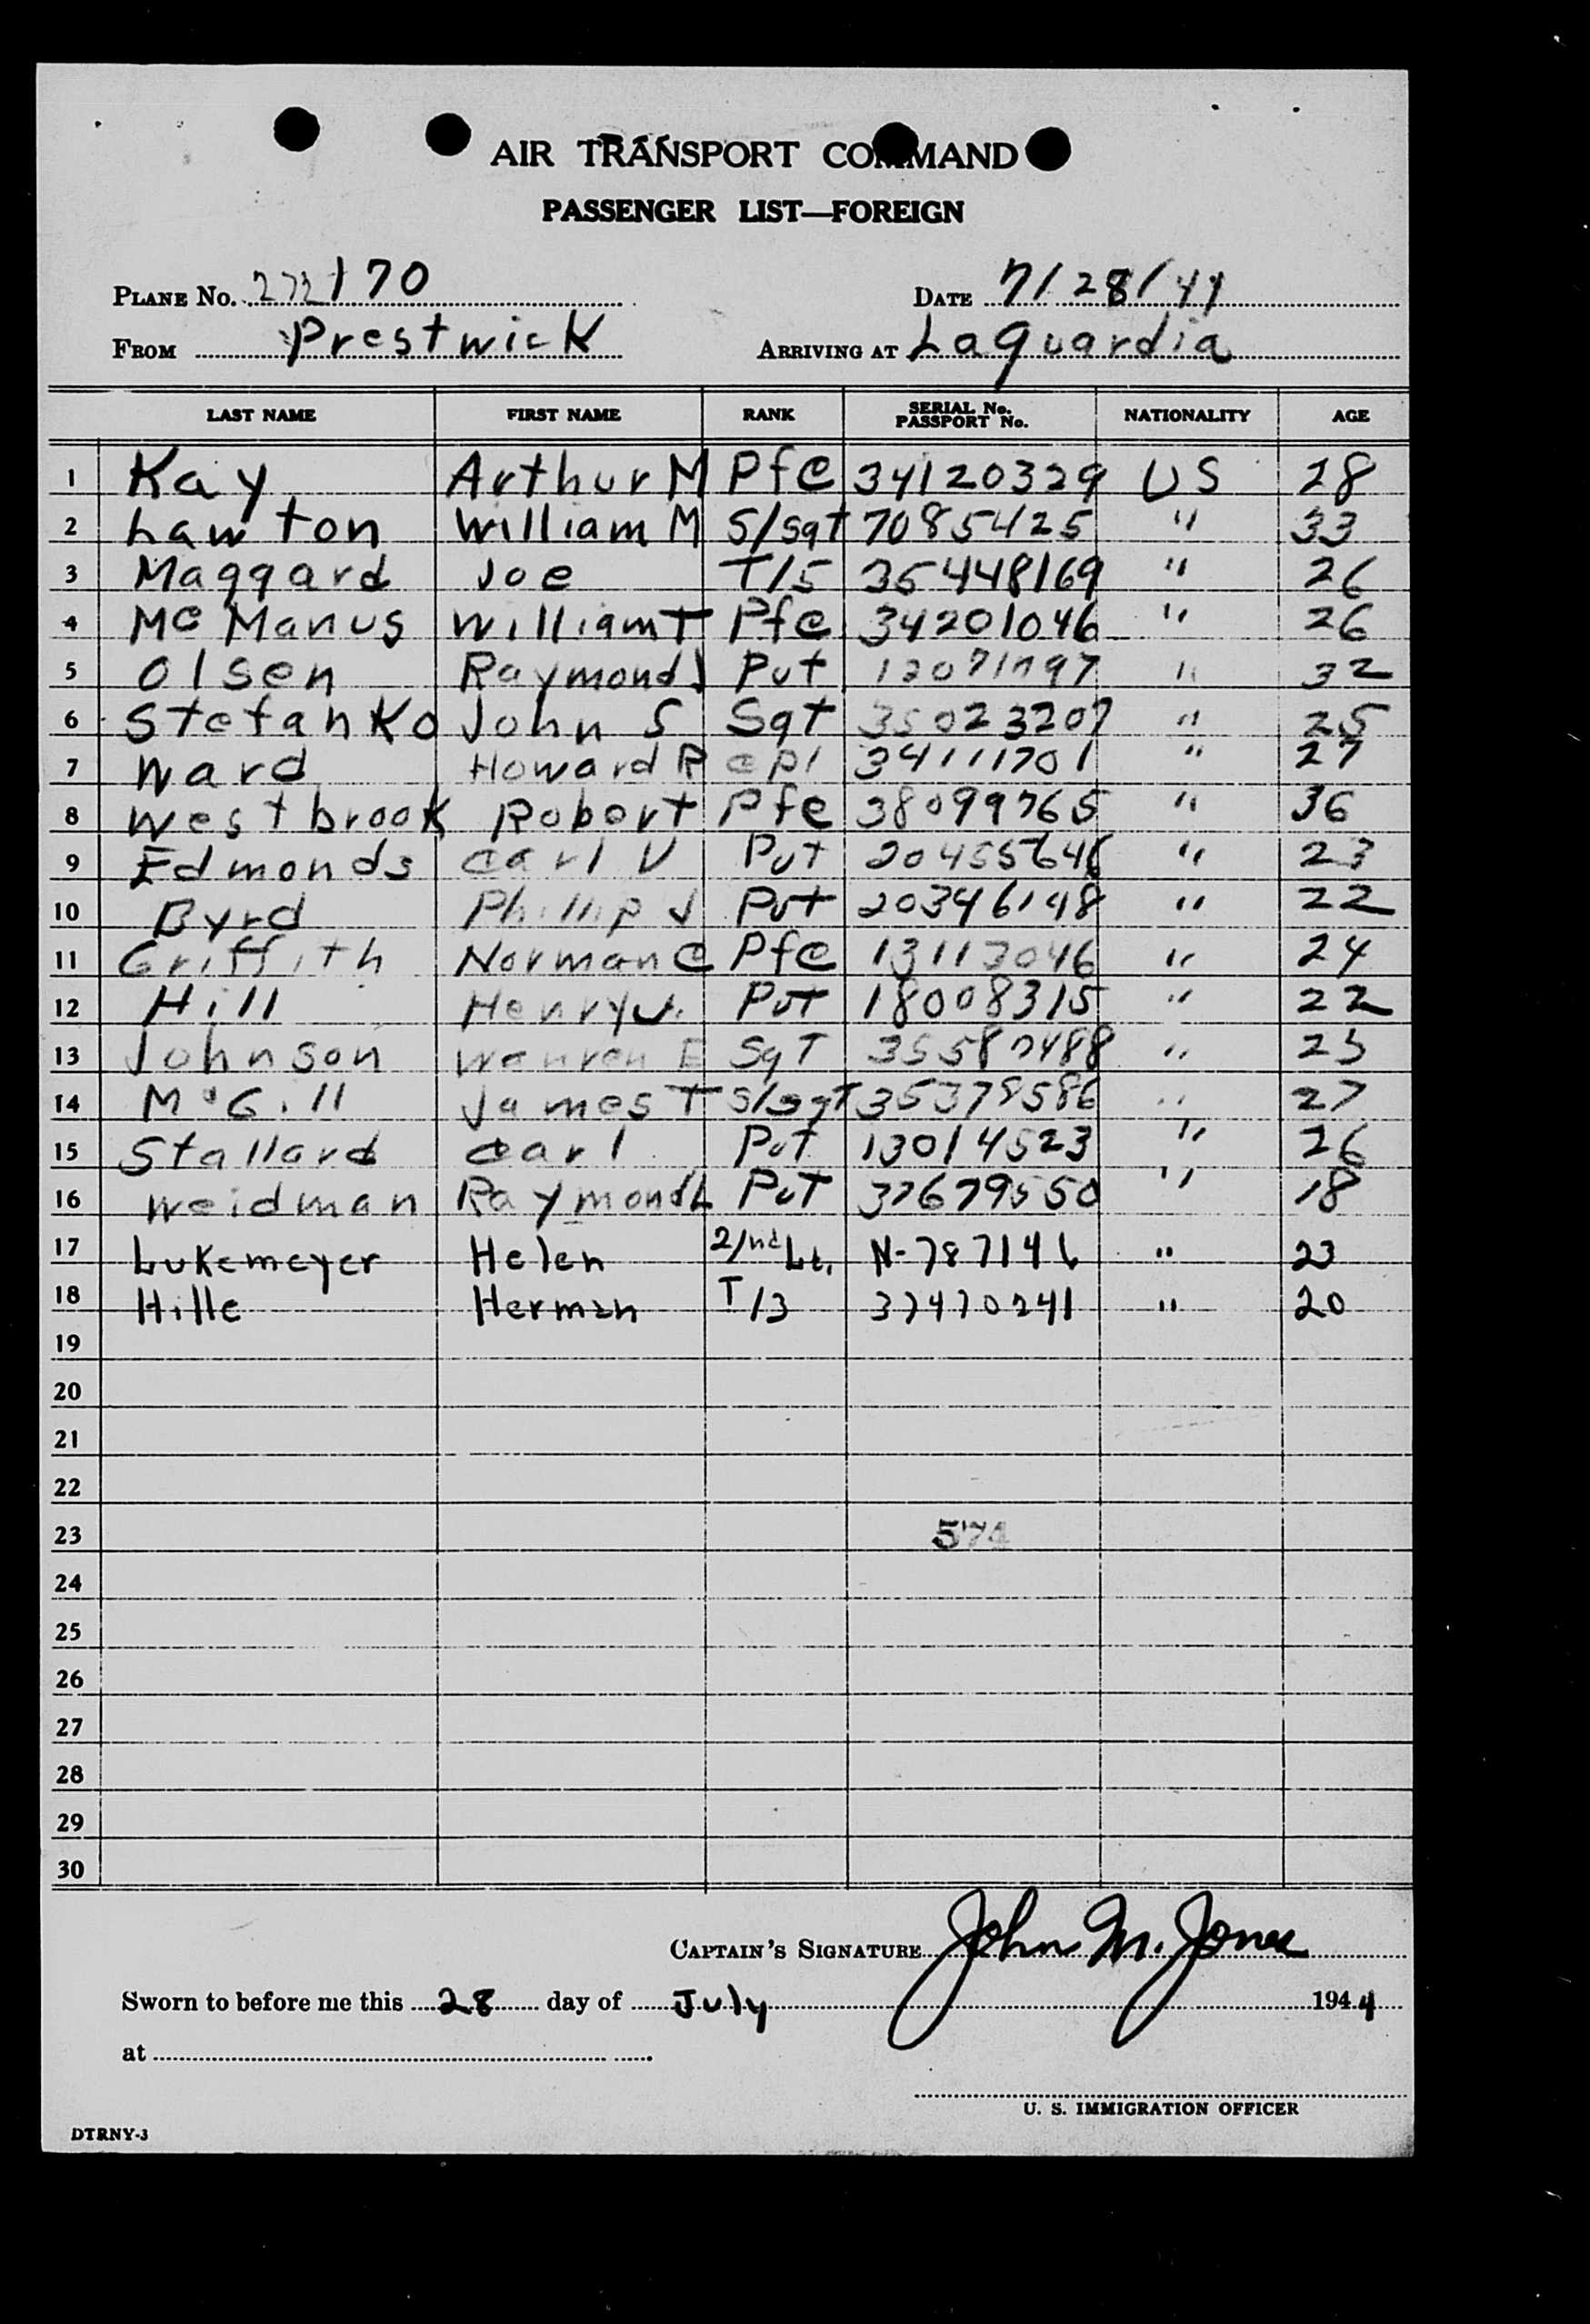 AIR TRANSPORT COMMAND
PASSENGER LIST—FOREIGN
PLANE No. 272170 DATE 7/28/44
FROM Prestwick ARRIVING AT Laguardia
LAST NAME FIRST NAME RANK SERIAL No. PASSPORT No. NATIONALITY AGE
1 Kay, Arthur M Pfc 34120329 US 28
2 Lawton William M S/sgt 7085425 " 33
3 Maggard Joe T/5 35448169 " 26
4 McManus William T Pfc 34201046 " 26
5 Olsen Raymond J Pvt " 32
6 Stefanko John S Sgt 35023207 " 25
7 Ward Howard R Cpl 34111701 " 27
8 Westbrook Robert Pfc 38099765 " 36
9 Edmonds Carl V Pvt 20455646 " 23
10 Byrd Phillip J Pvt 20346148 " 22
11 Griffith Norman C Pfc 13113046 " 24
12 Hill Henry J. Pvt 18008315 " 22
13 Johnson Warren E SgT 35587488 " 25
14 McGill James T S/sgT 35378586 " 27
15 Stallard Carl Pvt 13014523 " 26
16 Weidman Raymond L PvT 37679550 " 18
17 Lukemeyer Helen 2/nd Lt. N-787146 " 23
18 Hille Herman T/3 37470241 " 20
19
20
21
22
23 574
24
25
26
27
28
29
30
CAPTAIN'S SIGNATURE John M. Jones
Sworn to before me this 28 day of July 1944
at
U. S. IMMIGRATION OFFICER
DTRNY-3